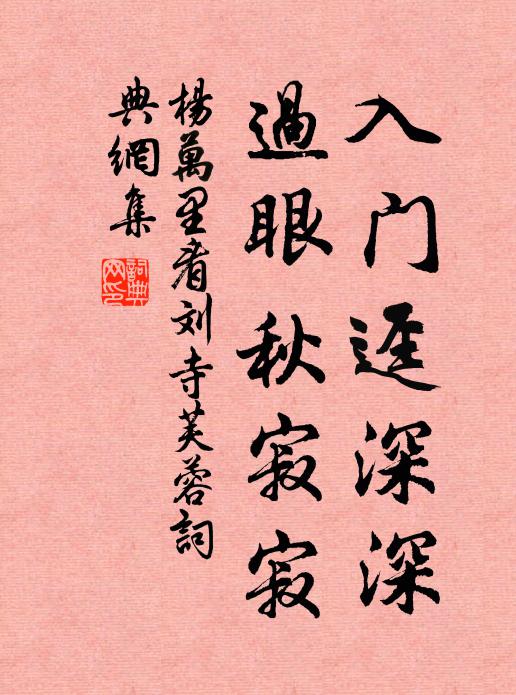 入门逕深深
過眼秋寂寂
楊萬里看刘寺芙蓉詞
典網集
詞典
网印